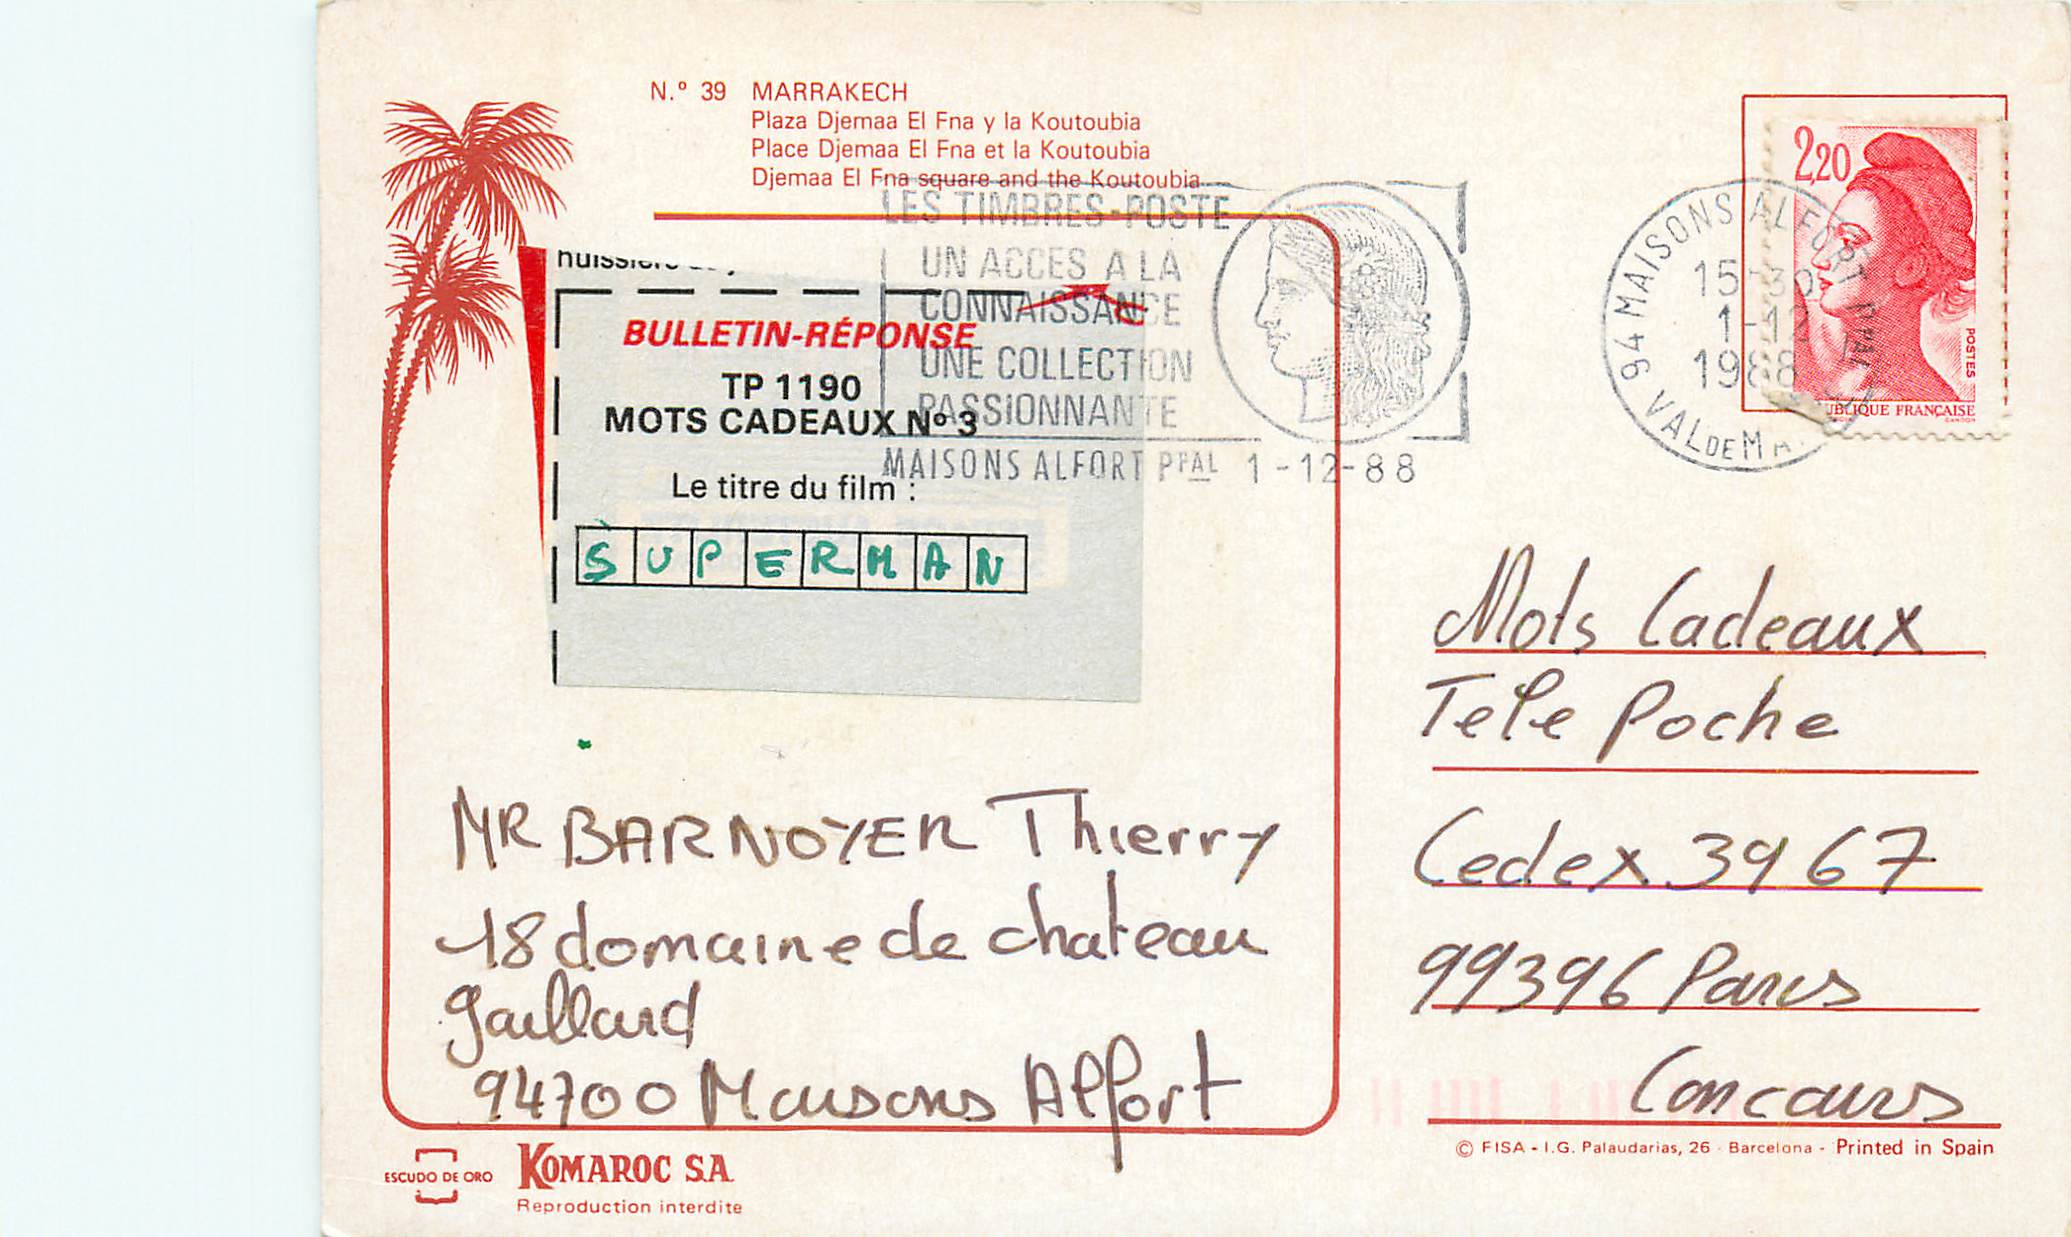 N.º 39 MARRAKECH
Plaza Djemaa El Fna y la Koutoubia
Place Djemaa El Fna et la Koutoubia
Djemaa El Fna square and the Koutoubia
LES TIMBRES-POSTE
UN ACCES A LA
CONNAISSANCE
UNE COLLECTION
PASSIONNANTE
MAISONS ALFORT PPAL 1-12-88
94 MAISONS ALFORT PPAL
15-30
1-12
1988
VAL DE MA
2,20
POSTES
UBLIQUE FRANÇAISE
BULLETIN-RÉPONSE
TP 1190
MOTS CADEAUX Nº 3
Le titre du film :
SUPERMAN
MR BARNOYER Thierry
18 domaine de chateau
gaillard
94700 Maisons Alfort
Mots Cadeaux
Tele Poche
Cedex 3967
99396 Paris
Concours
ESCUDO DE ORO
KOMAROC S.A.
Reproduction interdite
© FISA - I.G. Palaudarias, 26 - Barcelona - Printed in Spain